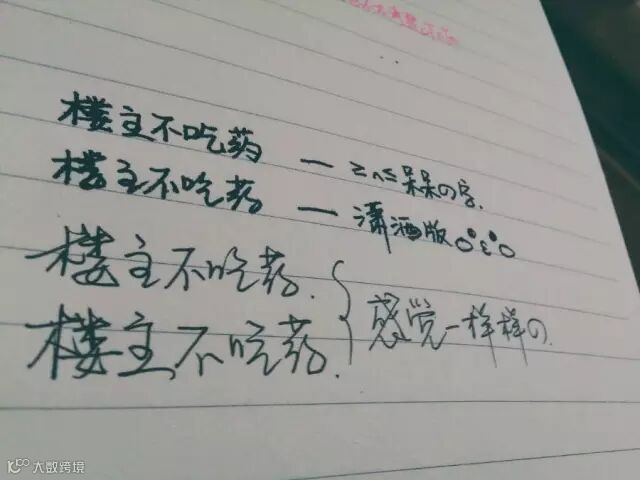 楼主不吃药 — ≥n≤呆呆の字.
楼主不吃药 — 潇洒版
楼主不吃药.
楼主不吃药.
感觉一样样の
大数跨境